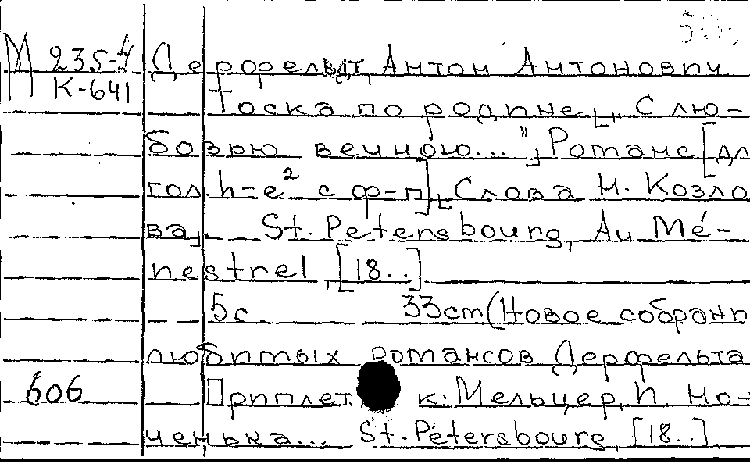 М 235-4 Дерфельдт, Антон Антонович
К-641 Тоска по родине „С лю-
бовью вечною..." Романс [дл
гол h-e² с ф-п] Слова И. Козло
ва. St. Petersbourg, Au Mé-
nestrel, [18..]
5с. 33cm (Новое собрани
любимых романсов Дерфельта
606 Приплет к: Мельцер, И. Но-
ченька... St. Petersbourg, [18..]